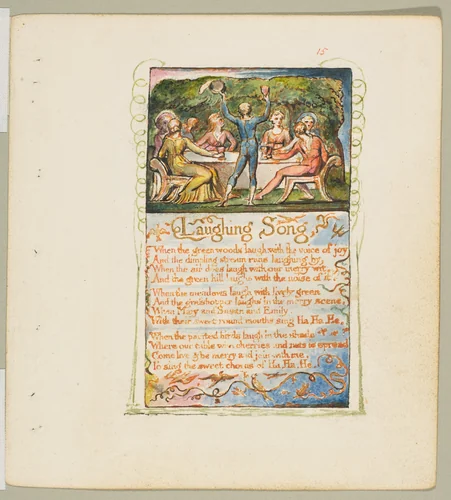 15
Laughing Song,
When the green woods laugh with the voice of joy
And the dimpling stream runs laughing by,
When the air does laugh with our merry wit,
And the green hill laughs with the noise of it.
When the meadows laugh with lively green
And the grashopper laughs in the merry scene,
When Mary and Susan and Emily,
With their sweet round mouths sing Ha, Ha, He.
When the painted birds laugh in the shade
Where our table with cherries and nuts is spread
Come live & be merry and join with me,
To sing the sweet chorus of Ha, Ha, He.